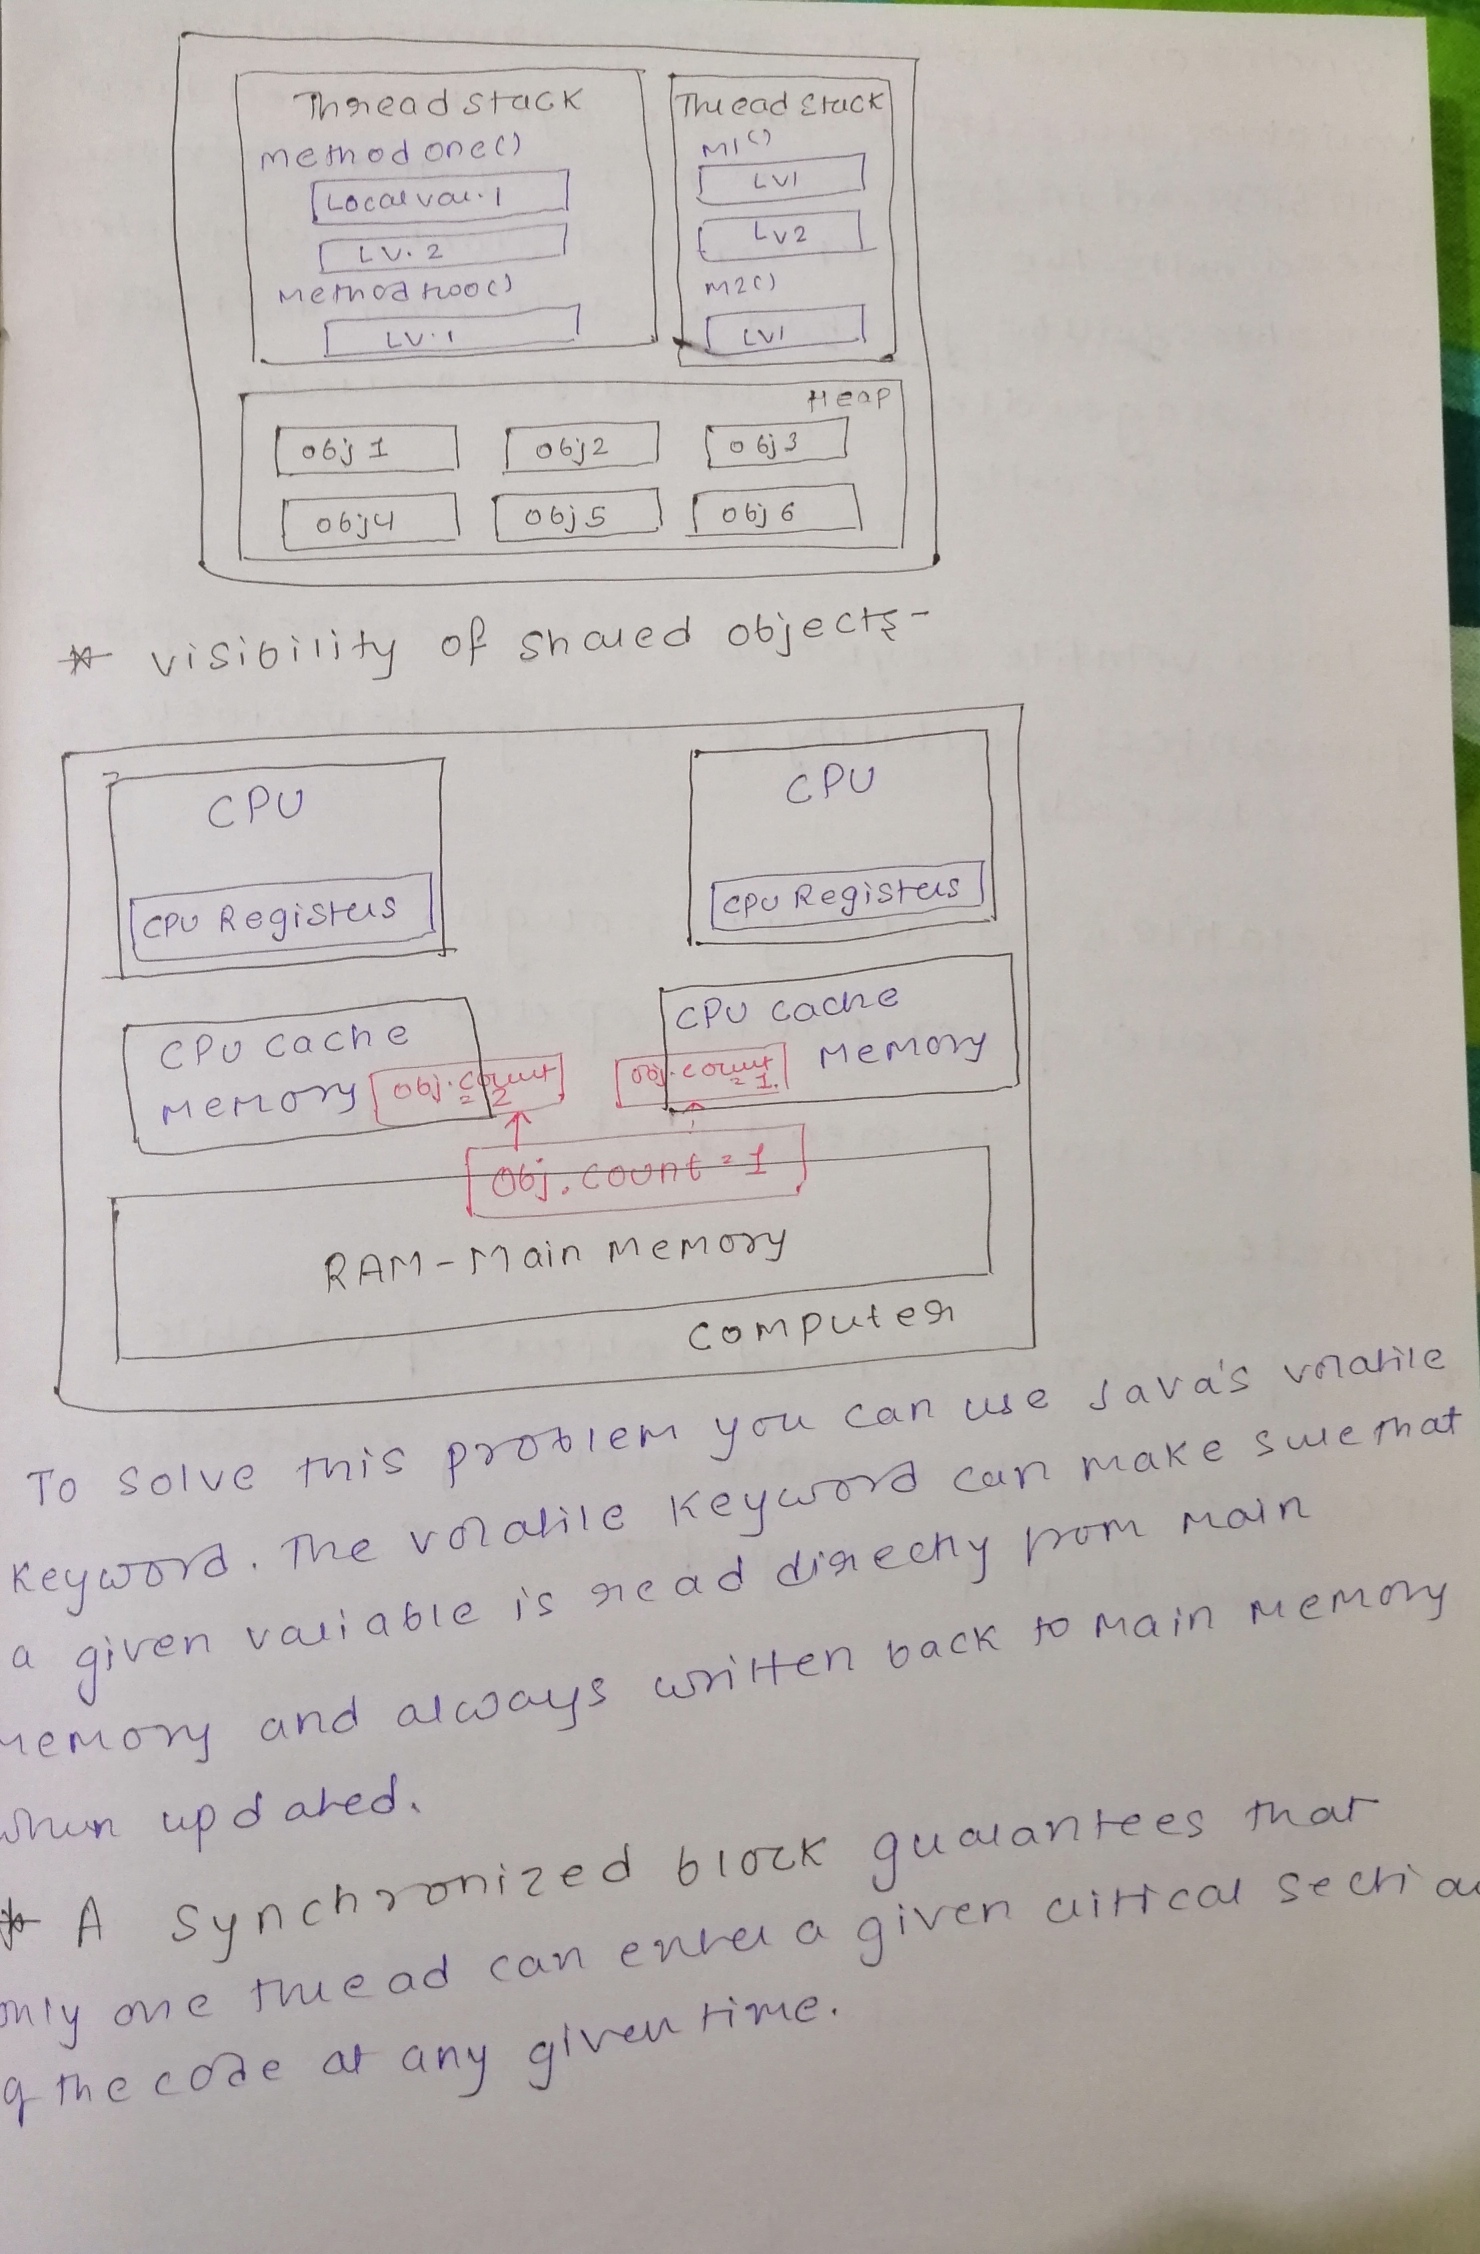 Thread Stack
Method one()
Local var. 1
LV. 2
Method two()
LV. 1
Thread Stack
M1()
LV1
LV2
M2()
LV1
Heap
Obj 1
Obj 2
Obj 3
Obj 4
Obj 5
Obj 6
* Visibility of shared objects-
CPU
CPU Registers
CPU
CPU Registers
CPU Cache
Memory
obj.count
= 2
CPU Cache
Memory
obj.count
= 1.
Obj.count = 1
RAM - Main Memory
Computer
To solve this problem you can use Java's volatile
keyword. The volatile keyword can make sure that
a given variable is read directly from main
memory and always written back to main memory
when updated.
* A synchronized block guarantees that
only one thread can enter a given critical section
of the code at any given time.